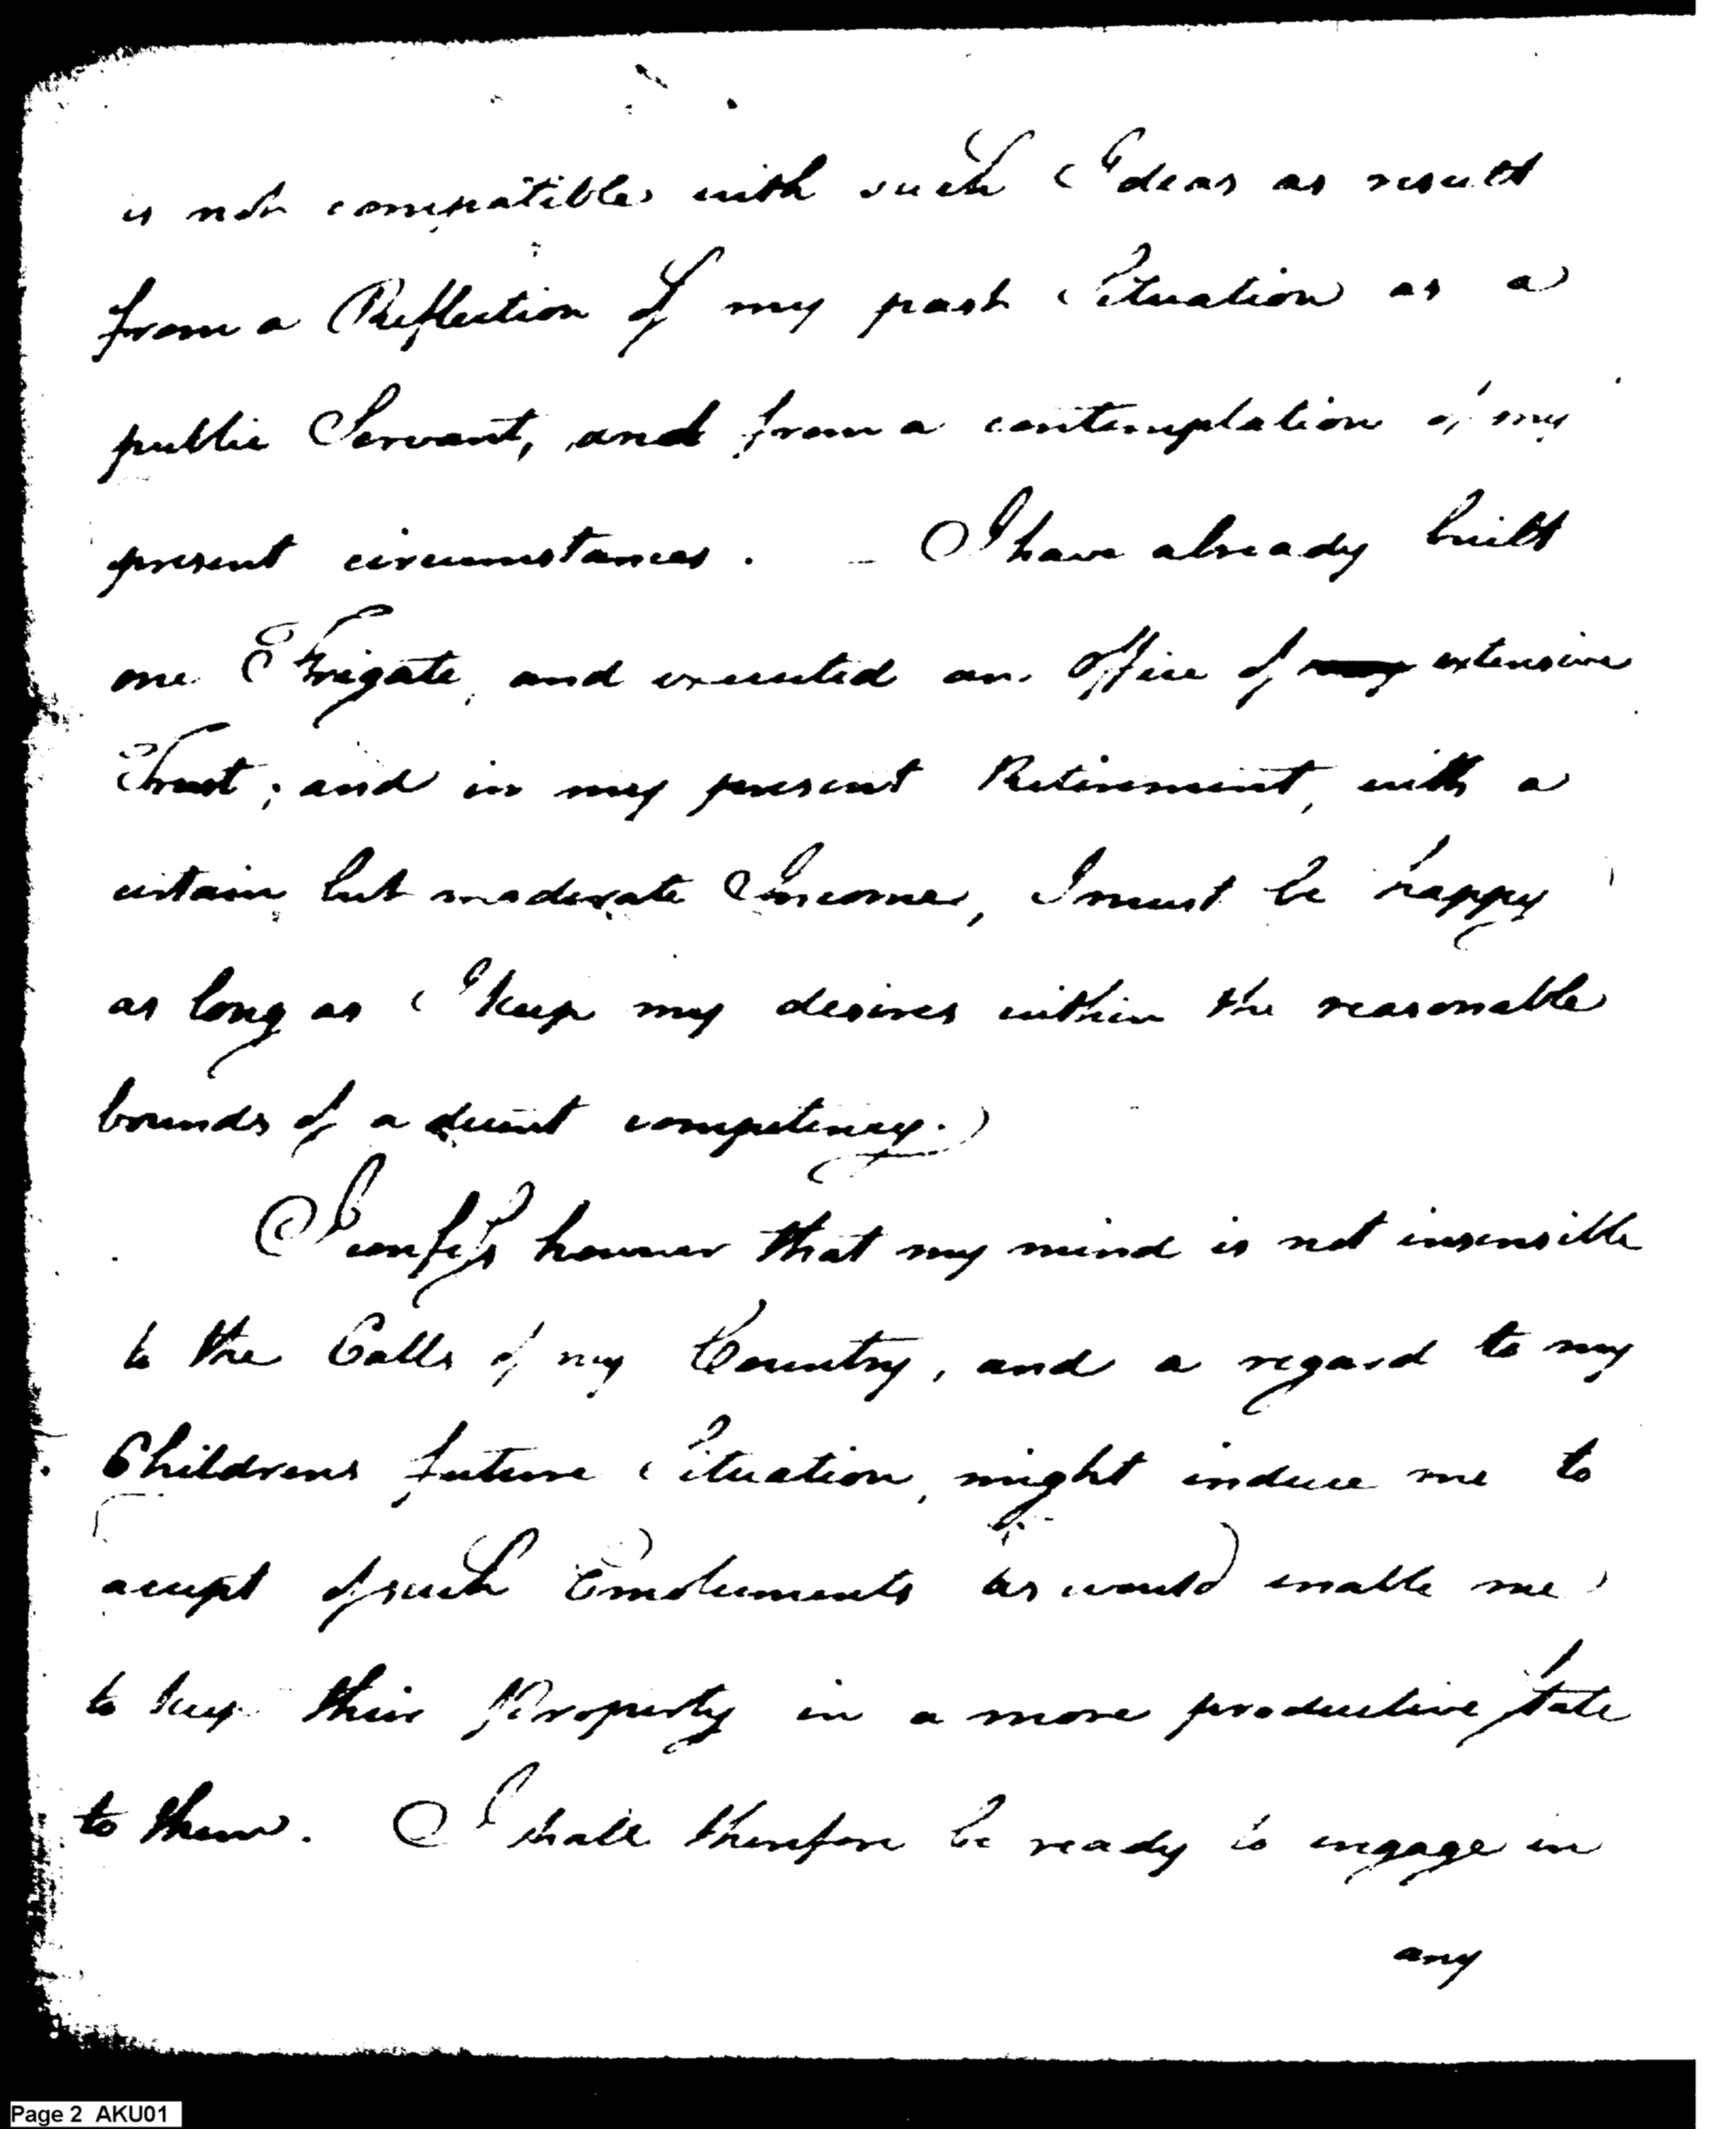 is not compatible with such Ideas as result
from a Reflection of my past Situation as a
public Servant, and from a contemplation of my
present circumstances. - I have already built
one Frigate, and executed an Office of extensive
Trust; and in my present Retirement, with a
certain but moderate Income, I must be happy
as long as I keep my desires within the reasonable
bounds of a decent competency.
I confess however that my mind is not insensible
to the Calls of my Country, and a regard to my
Childrens future Situation, might induce me to
accept of such Emoluments as would enable me
to keep their Property in a more productive State
to them. I shall therefore be ready to engage in
any
Page 2 AKU01